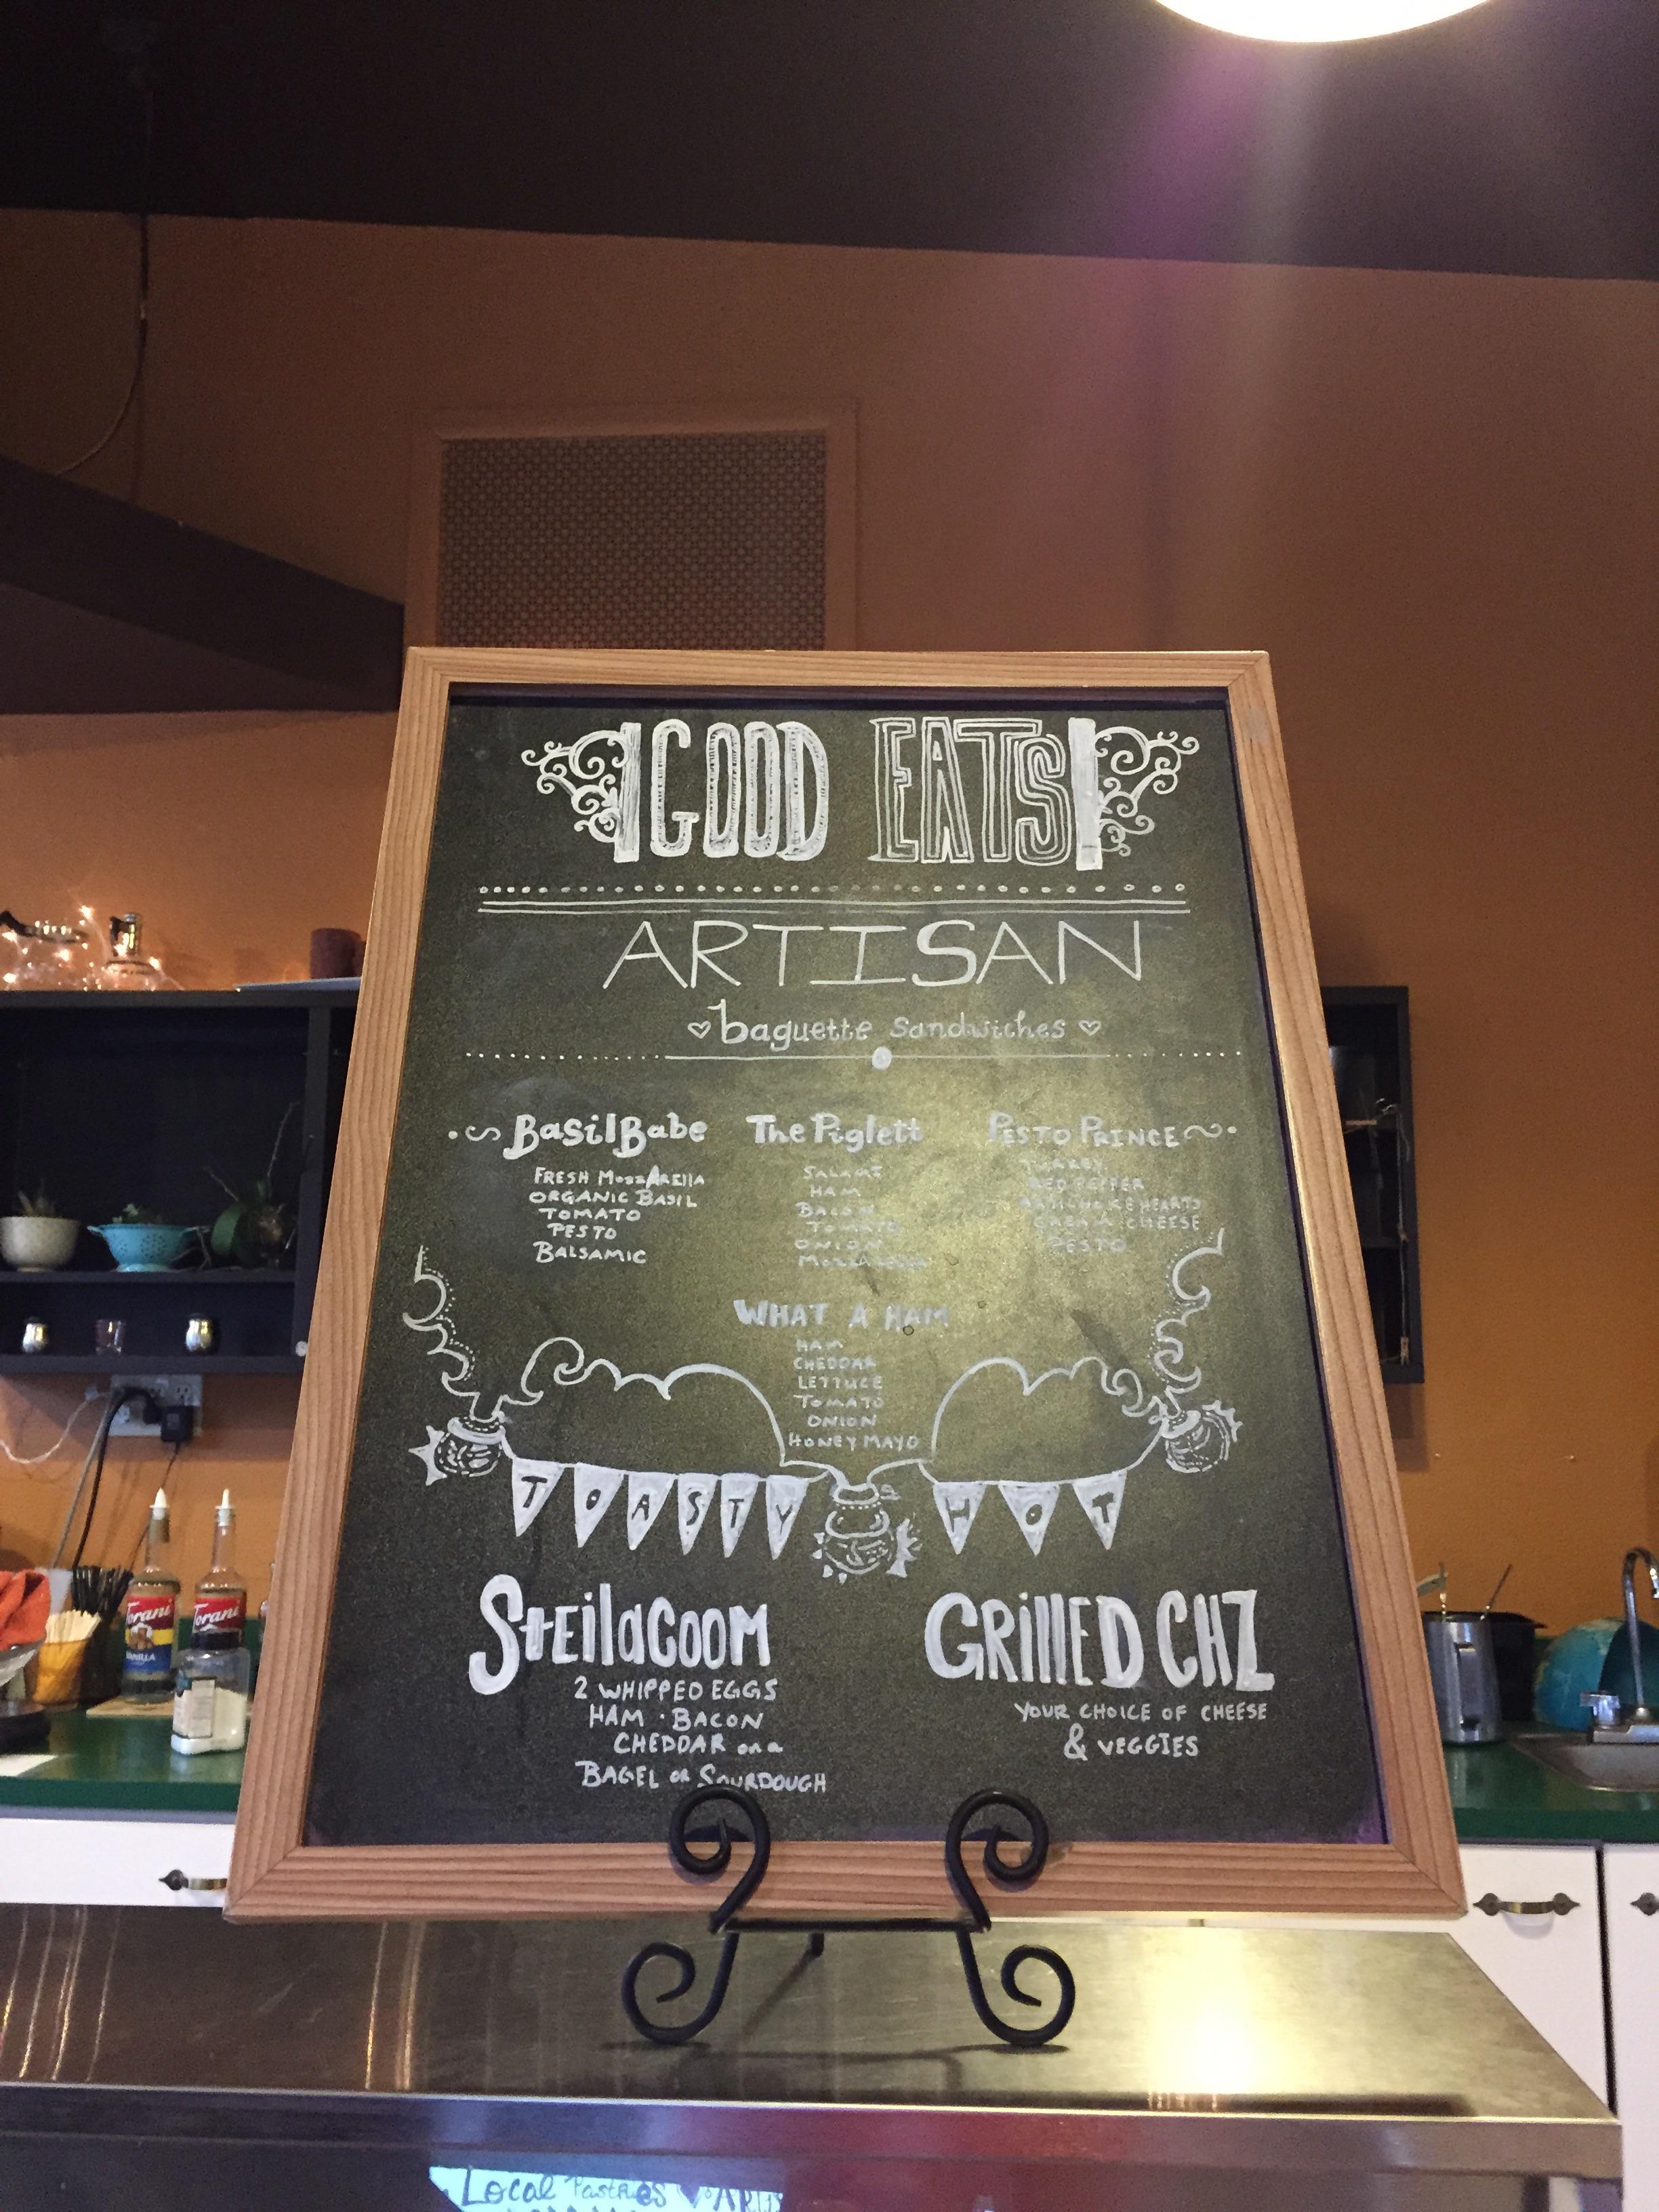 GOOD EATS!
ARTISAN
baguette sandwiches
Basil Babe
FRESH MOZZARELLA
ORGANIC BASIL
TOMATO
PESTO
BALSAMIC
The Piglett
SALAMI
HAM
BACON
TOMATO
ONION
MOZZARELLA
PESTO PRINCE
TURKEY
RED PEPPER
ARTICHOKE HEARTS
CREAM CHEESE
PESTO
WHAT A HAM
HAM
CHEDDAR
LETTUCE
TOMATO
ONION
HONEY MAYO
TOASTY HOT
SteilaCOOM
2 WHIPPED EGGS
HAM · BACON
CHEDDAR on a
BAGEL or SOURDOUGH
GRillED CHZ
YOUR CHOICE OF CHEESE
& VEGGIES
Torani
VANILLA
Torani
Local Pastries